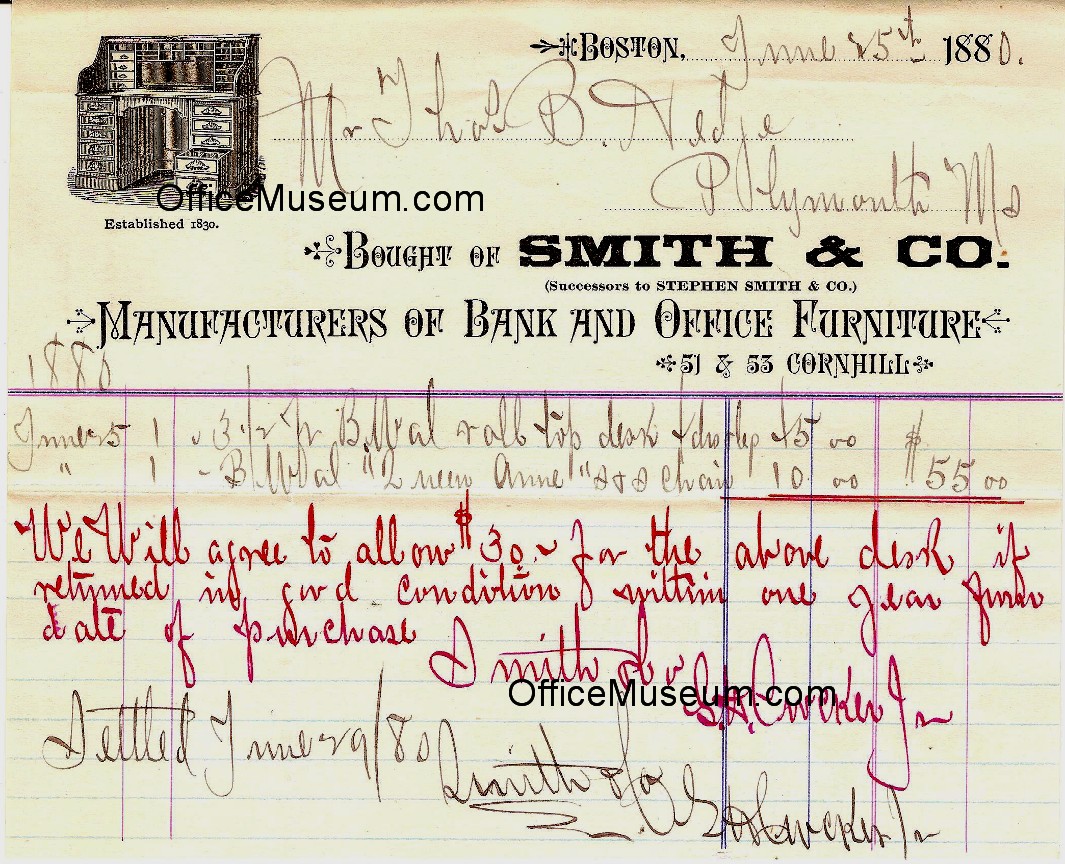 BOSTON, June 25th 1880.
Mr Thos. B. Hedge
Plymouth Ms
OfficeMuseum.com
Established 1830.
BOUGHT OF SMITH & CO.
(Successors to STEPHEN SMITH & CO.)
MANUFACTURERS OF BANK AND OFFICE FURNITURE
51 & 53 CORNHILL
1880
June 25 1 3 1/2 B. Wal roll top desk 45 00 $
" 1 - B Wal "Queen Anne" chair 10 00 55 00
We Will agree to allow $30 - for the above desk if
returned in good condition within one year from
date of purchase
Smith & Co
OfficeMuseum.com
Jr
Settled June 29/80 Smith & Co
Jr